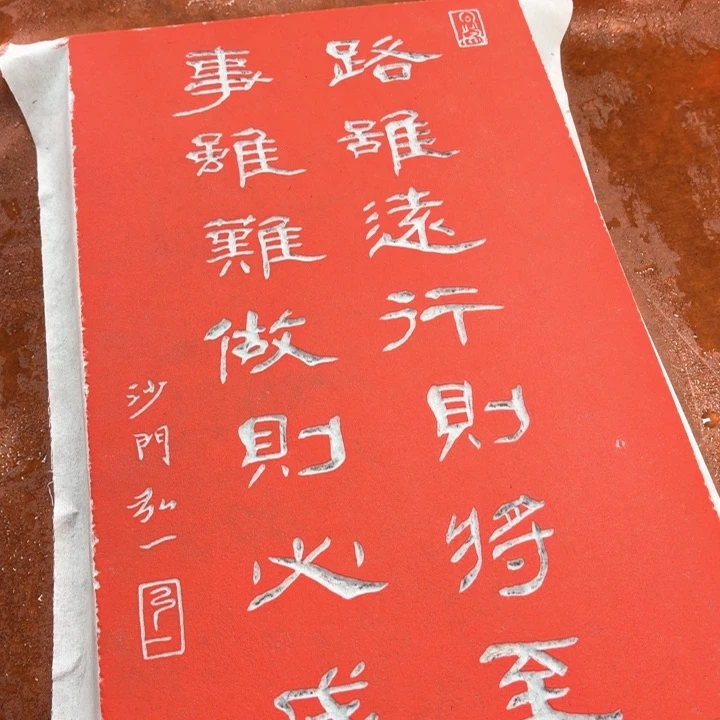 路雖遠行則將至
事雖難做則必成
沙門弘一
弘一